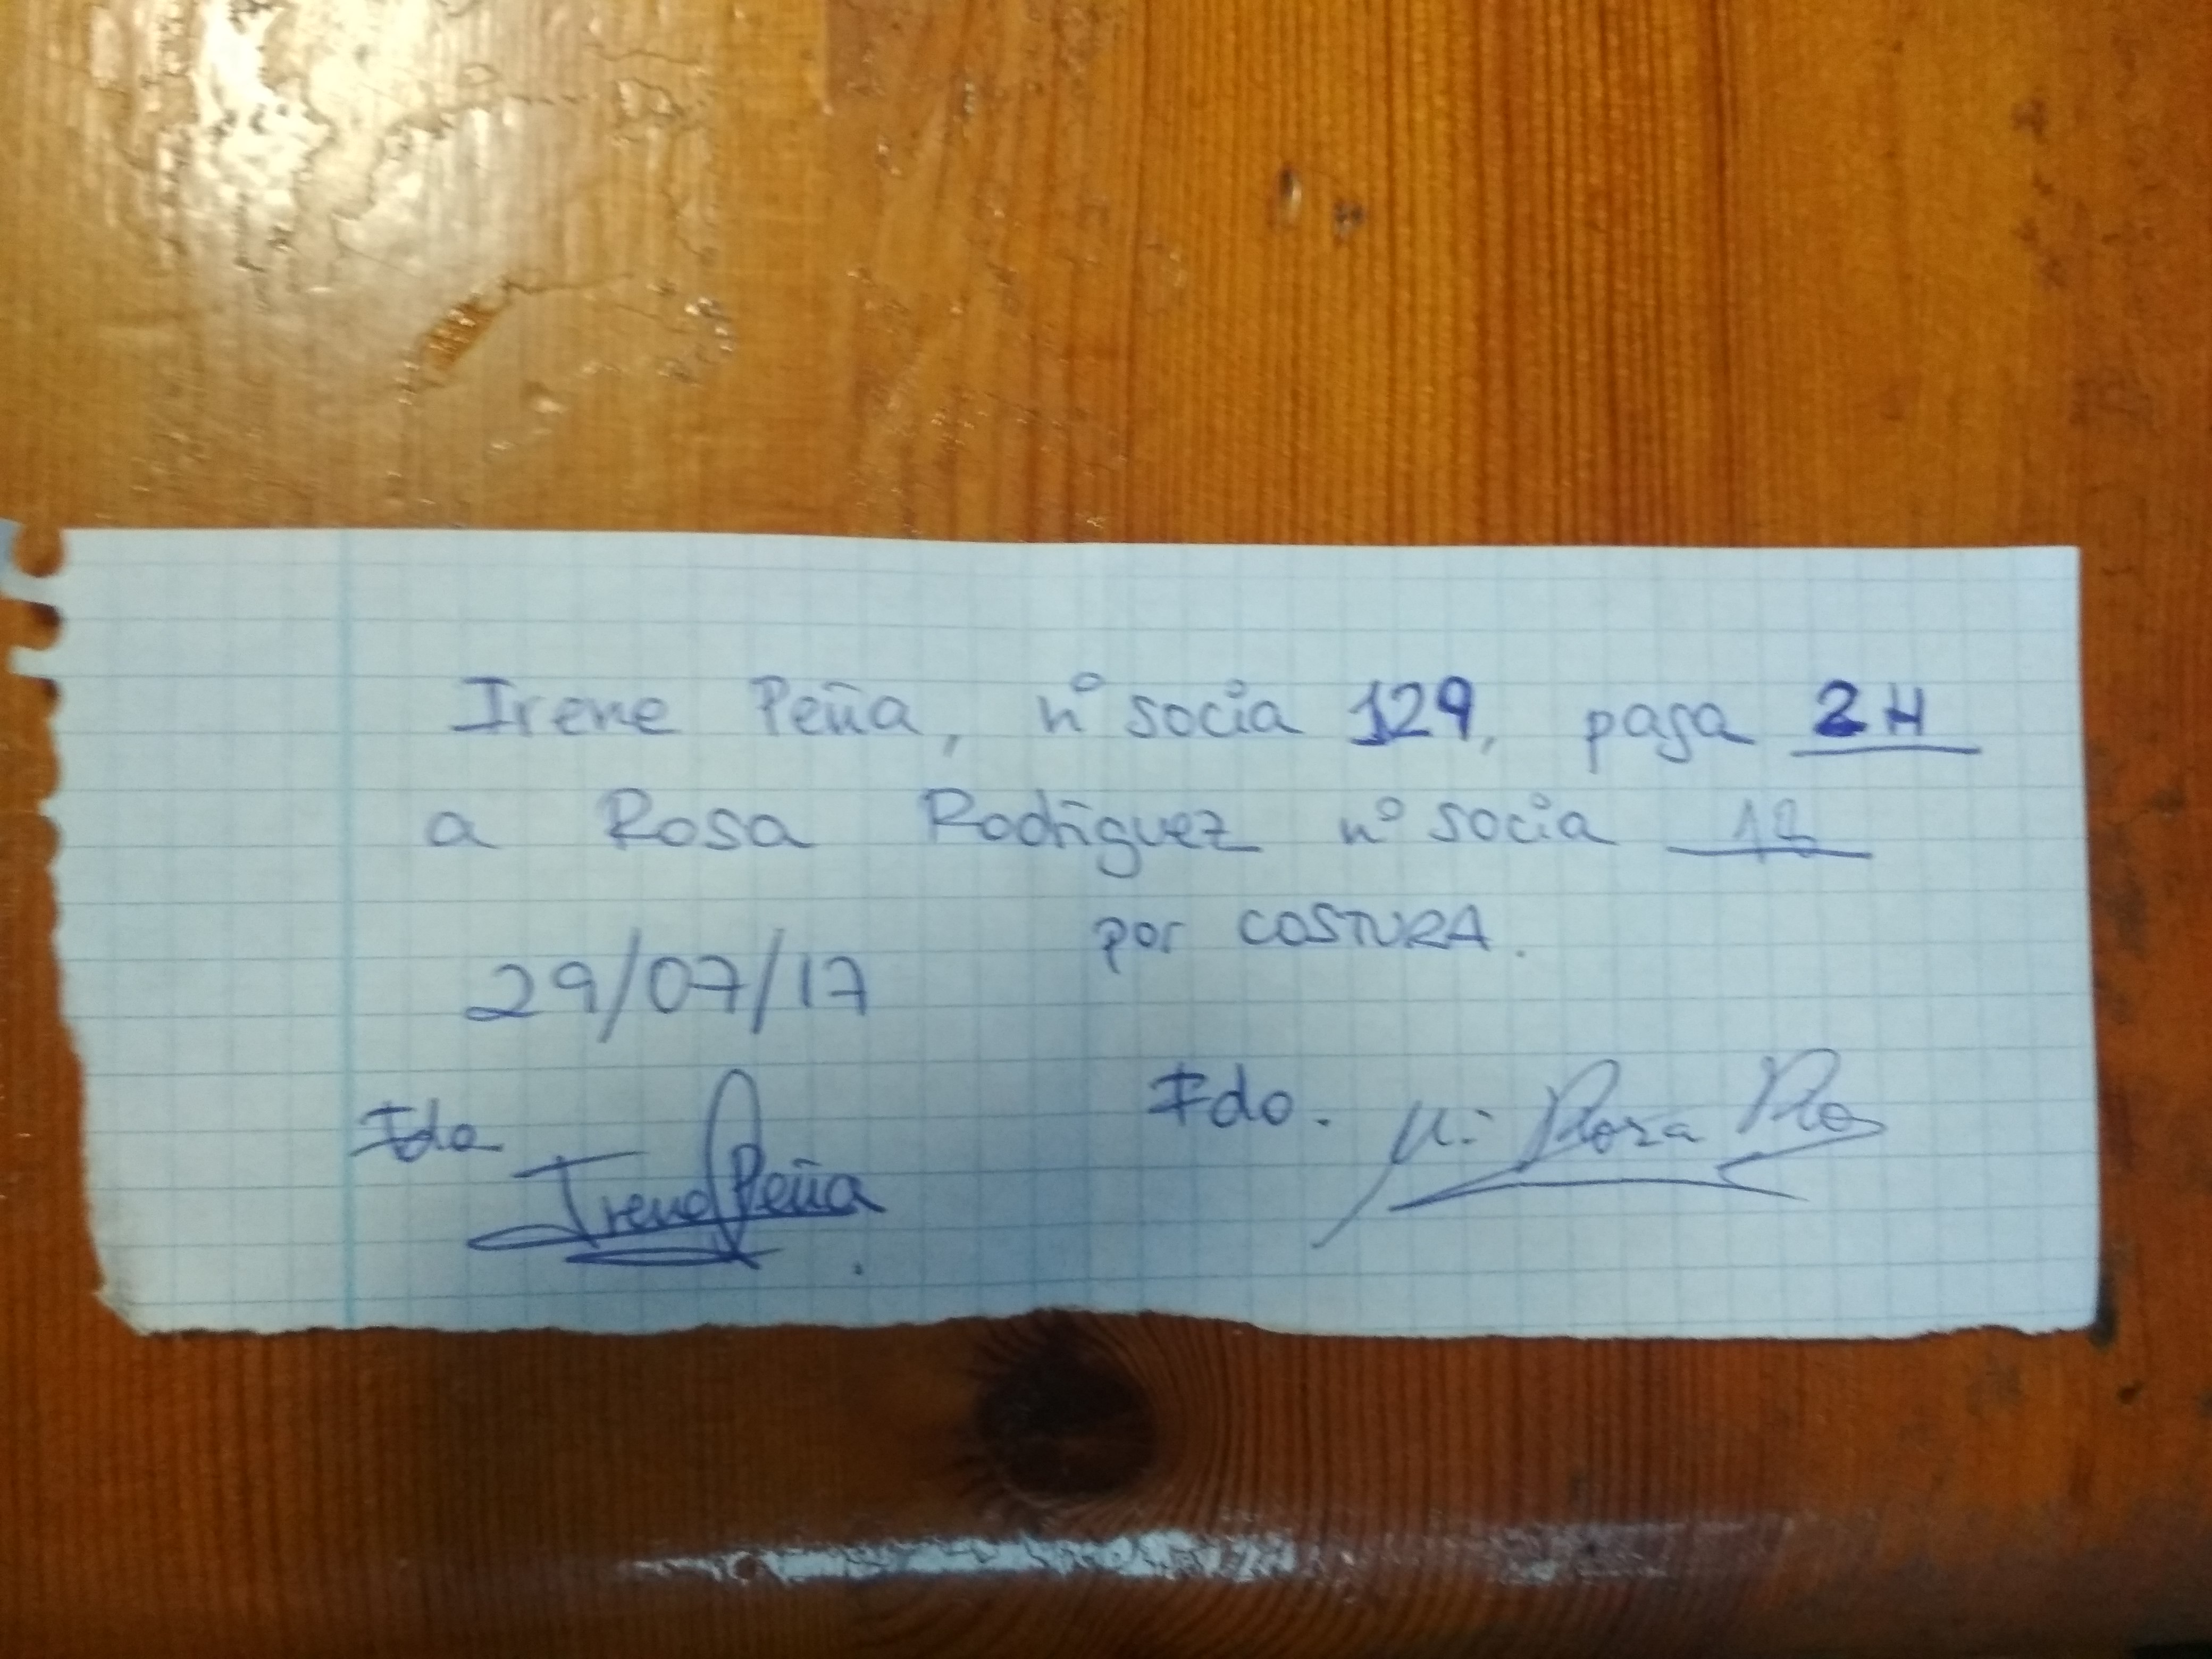 Irene Peña, nº socia 129, paga 2H
a Rosa Rodríguez nº socia 12
por COSTURA.
29/07/17
Fdo Irene Peña
Fdo. Mª Rosa Ro